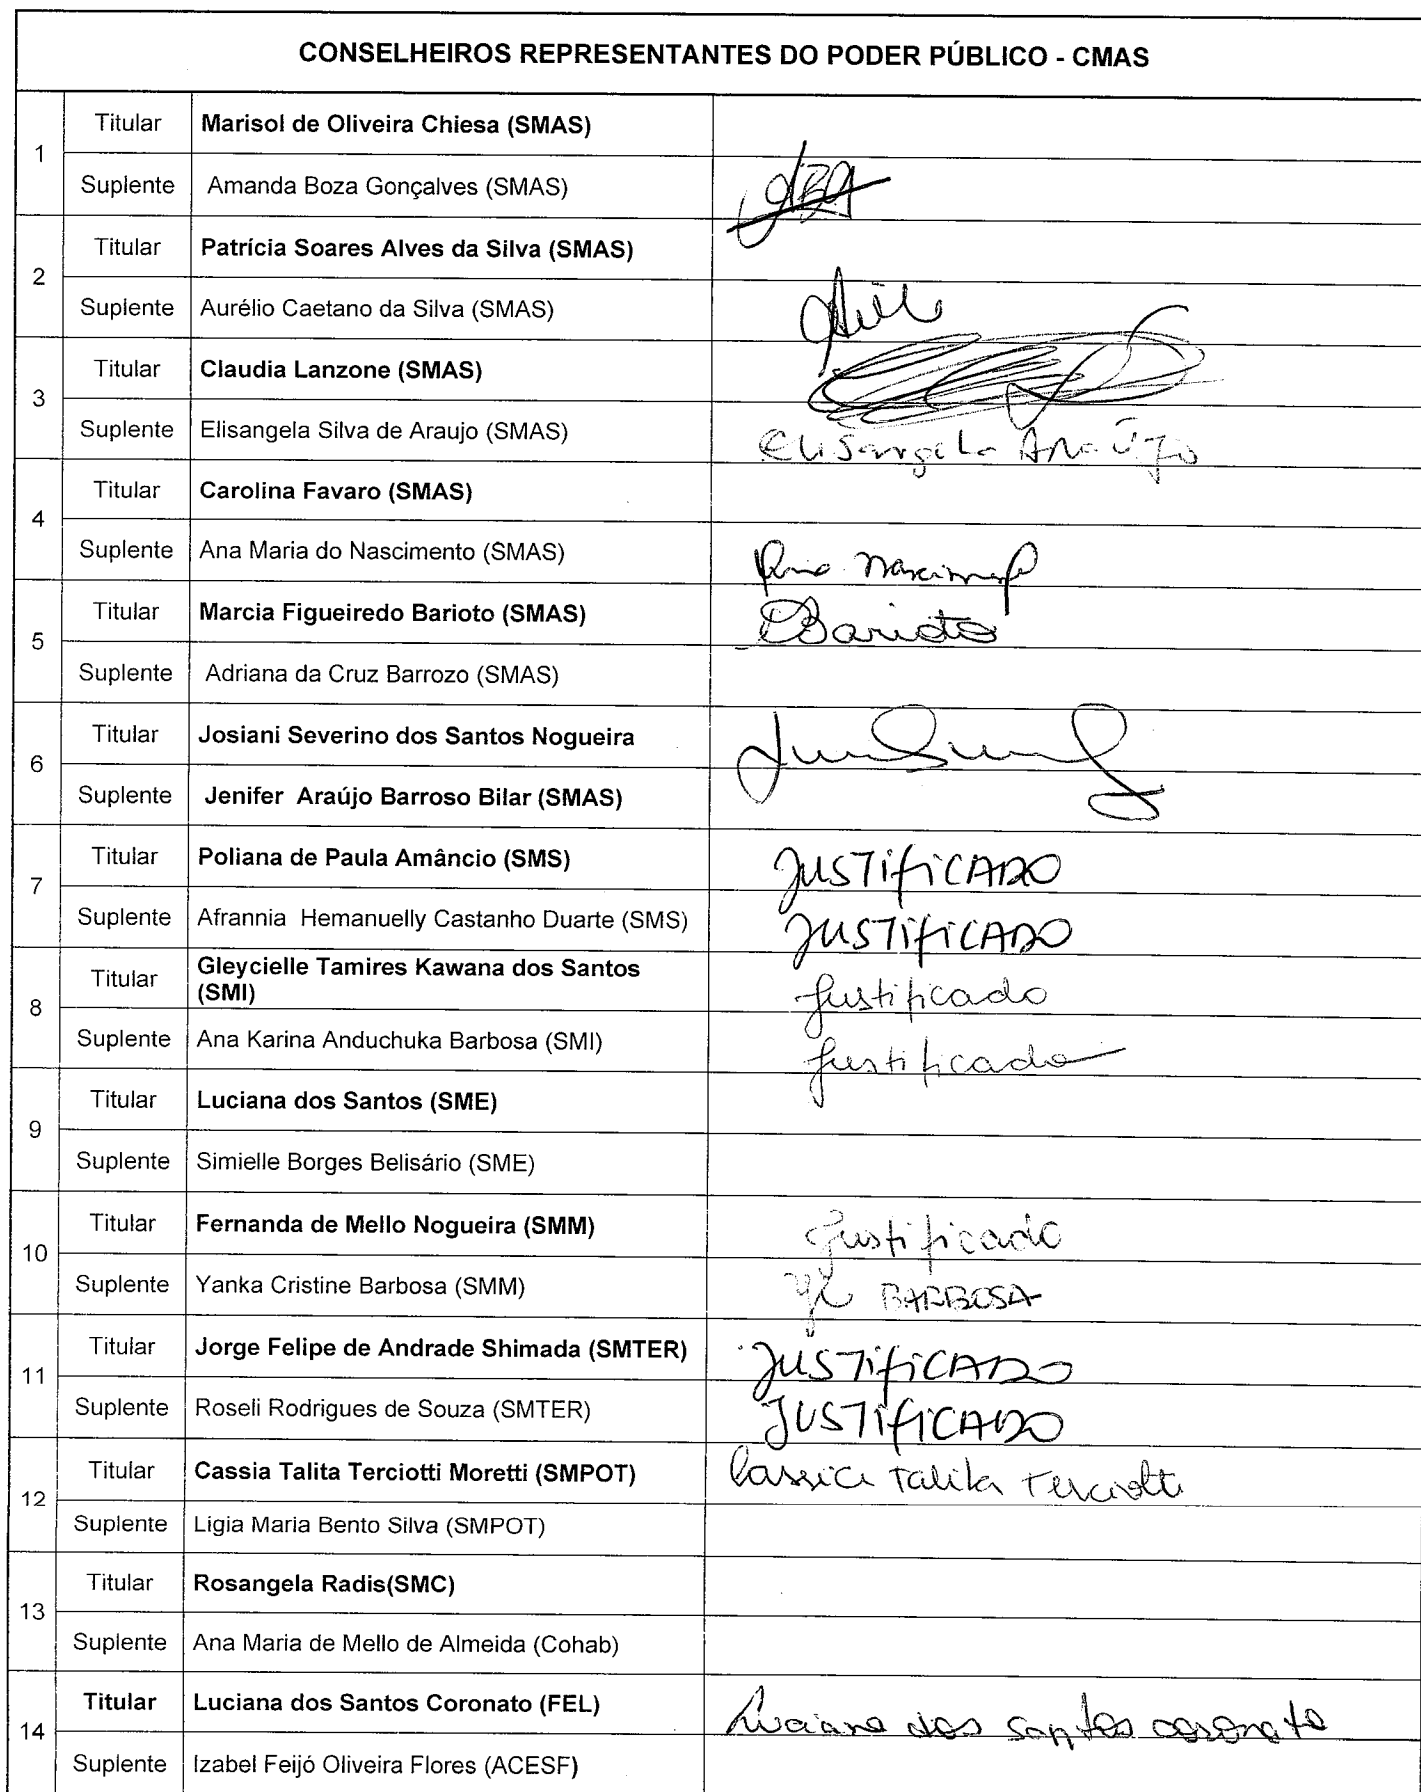 CONSELHEIROS REPRESENTANTES DO PODER PÚBLICO - CMAS
1
Titular Marisol de Oliveira Chiesa (SMAS)
Suplente Amanda Boza Gonçalves (SMAS)
2
Titular Patrícia Soares Alves da Silva (SMAS)
Suplente Aurélio Caetano da Silva (SMAS)
3
Titular Claudia Lanzone (SMAS)
Suplente Elisangela Silva de Araujo (SMAS) Elisangela Araújo
4
Titular Carolina Favaro (SMAS)
Suplente Ana Maria do Nascimento (SMAS)
5
Titular Marcia Figueiredo Barioto (SMAS) Barioto
Suplente Adriana da Cruz Barrozo (SMAS)
6
Titular Josiani Severino dos Santos Nogueira
Suplente Jenifer Araújo Barroso Bilar (SMAS)
7
Titular Poliana de Paula Amâncio (SMS) JUSTIFICADO
Suplente Afrannia Hemanuelly Castanho Duarte (SMS) JUSTIFICADO
8
Titular Gleycielle Tamires Kawana dos Santos
(SMI) Justificado
Suplente Ana Karina Anduchuka Barbosa (SMI) Justificado
9
Titular Luciana dos Santos (SME)
Suplente Simielle Borges Belisário (SME)
10
Titular Fernanda de Mello Nogueira (SMM) Justificado
Suplente Yanka Cristine Barbosa (SMM) BARBOSA
11
Titular Jorge Felipe de Andrade Shimada (SMTER) JUSTIFICADO
Suplente Roseli Rodrigues de Souza (SMTER) JUSTIFICADO
12
Titular Cassia Talita Terciotti Moretti (SMPOT) Cassia Talita Terciotti
Suplente Ligia Maria Bento Silva (SMPOT)
13
Titular Rosangela Radis(SMC)
Suplente Ana Maria de Mello de Almeida (Cohab)
14
Titular Luciana dos Santos Coronato (FEL) Luciana dos santos coronato
Suplente Izabel Feijó Oliveira Flores (ACESF)